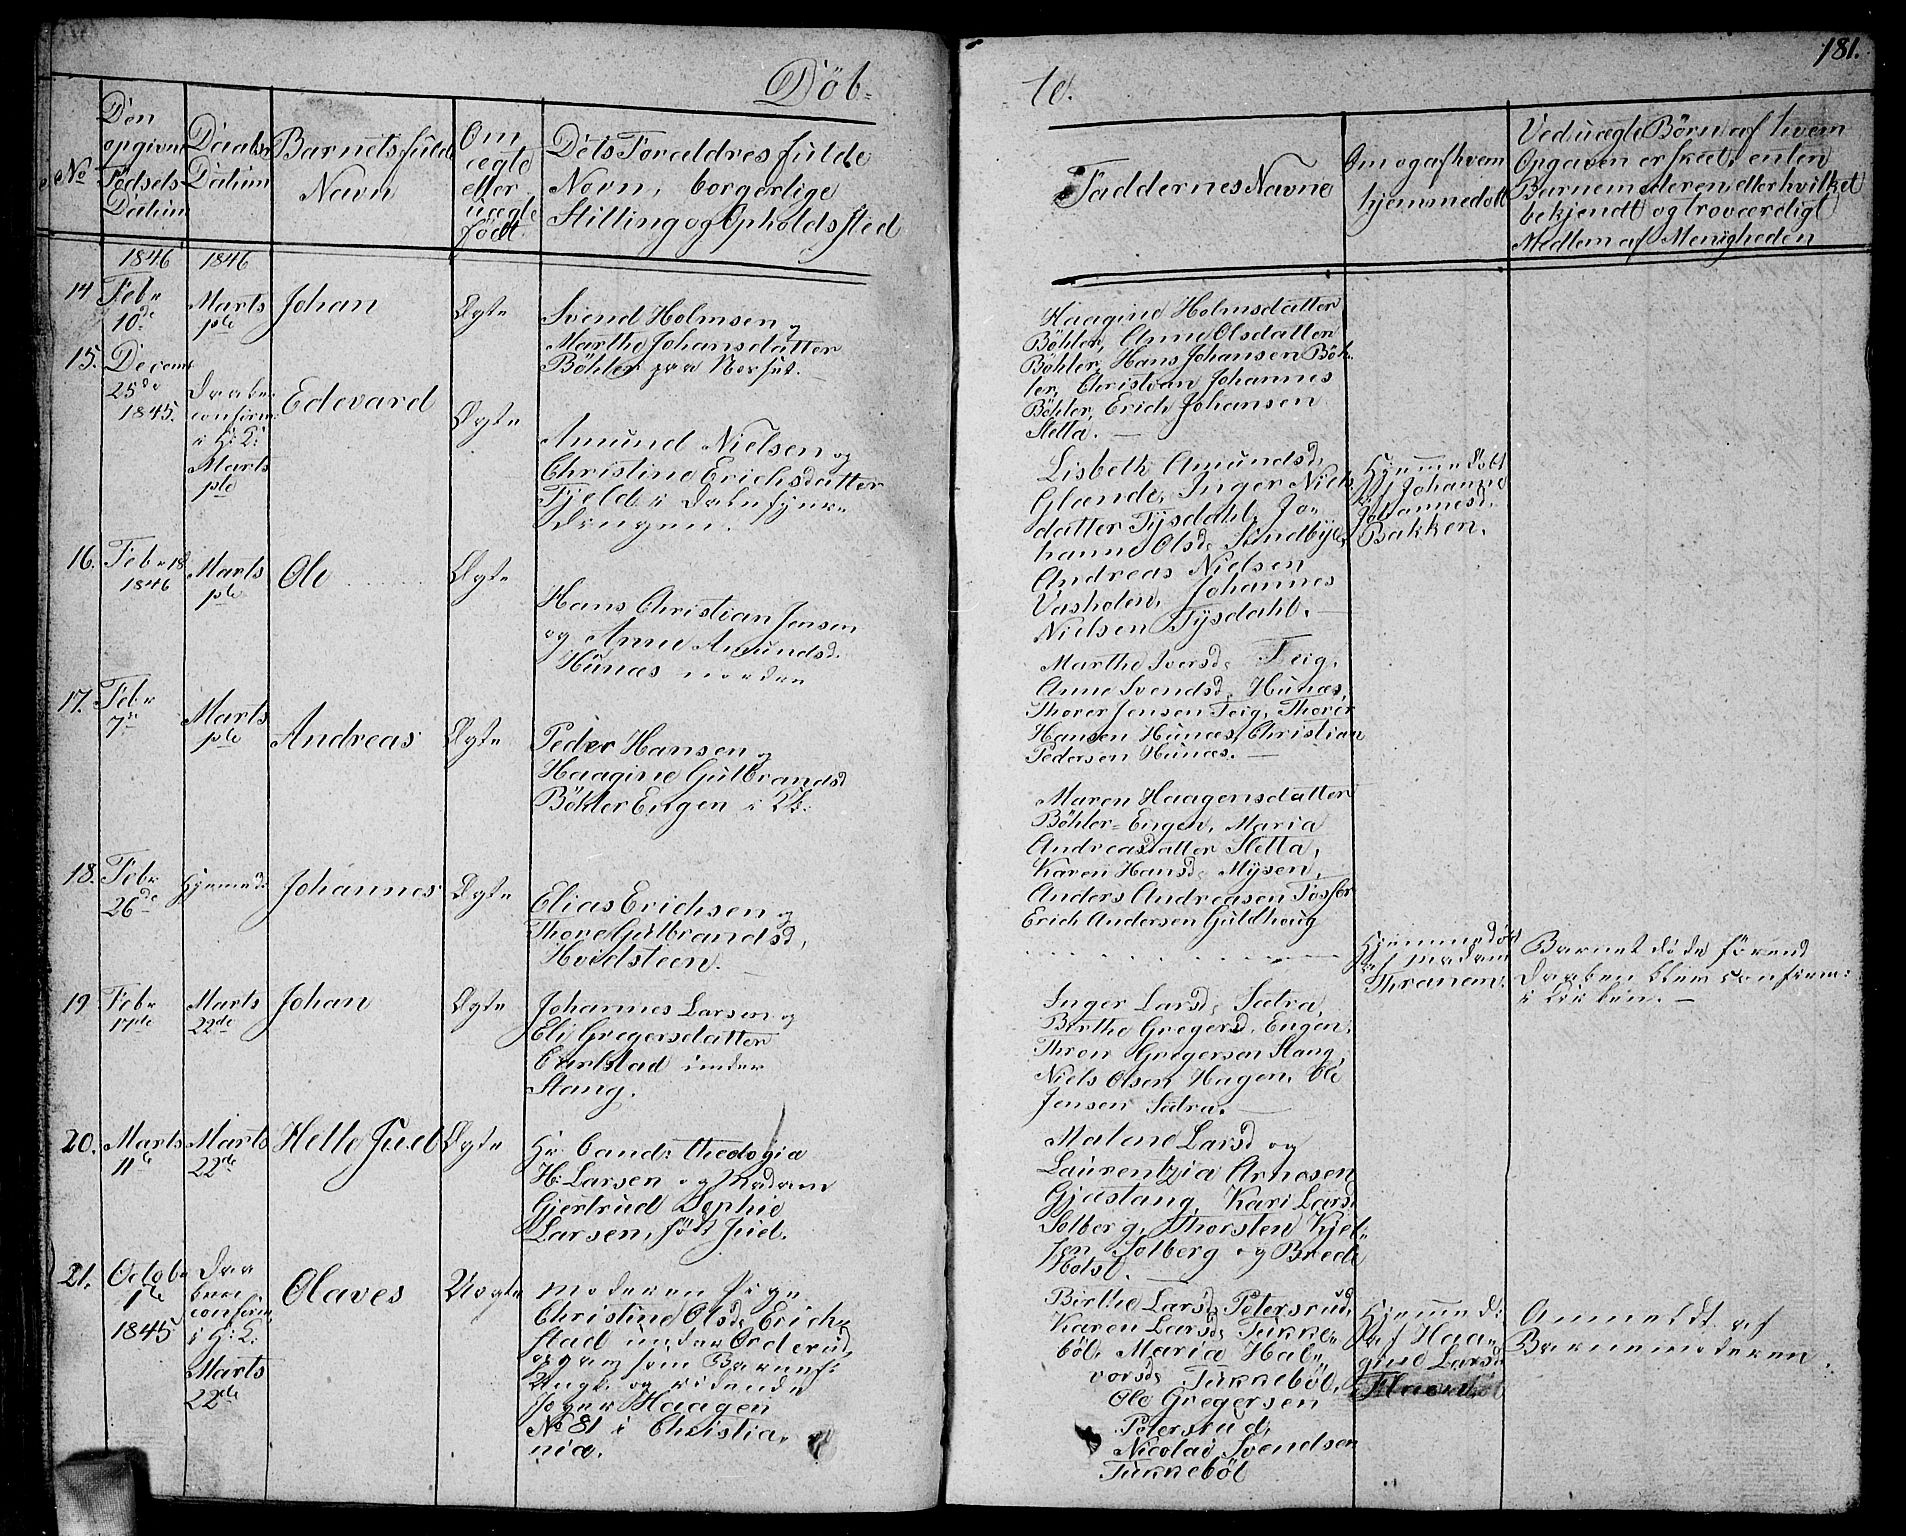 181.
Döb-
te.
No
Den
opgivne
Fødsels
Datum
Daabs
Datum
Barnets fulde
Navn
Om
ægte
eller
uægte
født.
Dets Foraldres fulde
Navn, borgerlige
Stilling og Opholdssted
Faddernes Navne
Om og af hvem
hjemmedøbt
Ved uægte Børn af hvem
Opgaven er skeet, enten
Barnemoderen eller hvilket
bekjendt og troværdigt
Medlem af Menigheden
1846 1846
14 Febr
10de
Marts
1ste
Johan
Ægte
Svend Holmsen og
Marthe Johansdatter
Böhler
Haagine Holmsdatter
Böhler, Anne Olsdatter
Böhler, Hans Johansen Böh-
ler, Christian Johannes
Böhler, Erich Johansen
Sletta.
15. Decembr
25de
1845.
Daaben
confirm:
i H: K:
Marts
1ste
Edevard
Ægte
Amund Nielsen og
Christine Erichsdatter
Fjeld i
Lisbeth Amundsd.
Glænde, Inger Niels-
datter Tysdahl, Jo-
hanne Olsd. Sundbye,
Andreas Nielsen
Vasholen, Johannes
Nielsen Tysdahl.
Hjemmedøbt
af Johanne
Johannesd.
Bakken.
16. Febr 18
1846
Marts
1ste
Ole
Ægte
Hans Christian Jensen
og Anne Amundsd.
Hunæs nordre
Marthe Iversd. Teig,
Anne Svendsd. Hunæs,
Thorer Jensen Teig, Thorer
Hansen Hunæs, Christian
Pedersen Hunæs.
17. Febr
7de
Marts
1ste
Andreas
Ægte
Peder Hansen og
Haagine Gulbrandsd
Böhler Engen
Maren Haagensdatter
Böhler-Engen, Maria
Andreasdatter Sletta,
Karen Hansd. Mysen,
Anders Andreasen Fosser
Erich Andersen Guldhoug
18. Febr
26de
Hjemmed:
Johannes
Ægte
Elias Erichsen og
Thore Gulbrandsd,
Hvidsteen.
Hjemmedøbt
af Madam
Thranem.
Barnet døde førend
Daaben blev confirm:
i Kirken.
19 Febr
17de
Marts
22de
Johan
Ægte
Johannes Larsen og
Eli Gregersdatter
Carlstad under
Stang.
Inger Larsd. Sætra,
Birthe Gregersd. Engen,
Thron Gregersen Stang,
Niels Olsen Hagen, Ole
Jensen Sætra.
20. Marts
11te
Marts
22de
Helle Juel
Ægte
Hr Cand: theologia
H: Larsen og Madame
Gjertrud Sophie
Larsen, født Juel.
Malene Larsd og
Laurentzia Arnesen
Gjøstang, Kari Larsd
Solberg, Thorsten Kjel-
sen Solberg og Brede
Holst.
21. Octobr
1te
1845
Daa
ben
confirm
i H: K:
Marts
22de
Olaves
Uægte
Moderen Pige
Christine Olsd. Erich-
stad under Orderud,
opgav som Barnef:
Ungk. og ridende
Jæger Haagen
No 81 i Christia-
nia.
Birthe Larsd. Petersrud,
Karen Larsd. Tukke-
böl, Maria Hal-
vorsd. Tukkeböl,
Ole Gregersen
Petersrud,
Nicolai Svendsen
Tukkeböl
Hjemmed:
af Haa-
gine Larsd.
Anmeldt af
Barnemoderen.